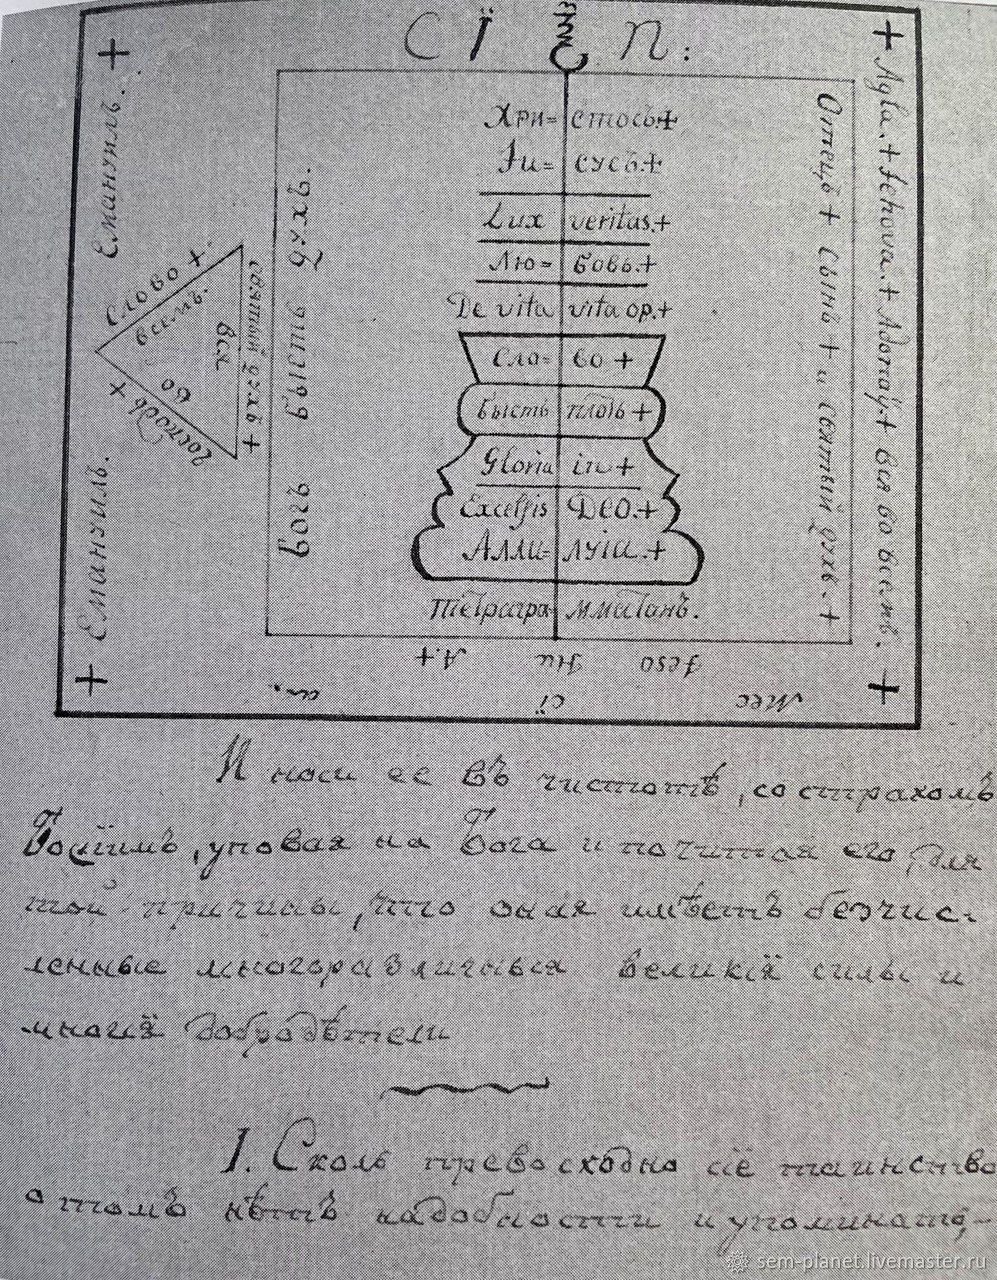 Сї п:
+ Емануилъ.
Емануилъ. +
Слово +
Святый духъ +
Господь +
всемъ.
вся
во
Богъ бысть духъ.
Хри= стосъ.+
Iи= сусъ.+
Lux veritas.+
Лю= бовь.+
De vita vita op.+
Сло= во +
бысть плоть +
Gloria in +
Excelsis DEO.+
Алли= луіа.+
Тетрагра= мматанъ.
Отецъ + Сынъ + и святый духъ. +
+ Agla. + Jehova. + Adonay. + вся во всемъ. +
А.+ Jeso
сї Месс
И носи ее въ чистотѣ, со страхомъ
Божїимъ, уповая на Бога и почитая его, для
той причины, что оная имѣетъ безчис-
ленные многоразличныя великїя силы и
многїя добродѣтели
I. Сколь превосходно сїе таинство
о томъ нѣтъ надобности и упоминать,-
sem-planet.livemaster.ru